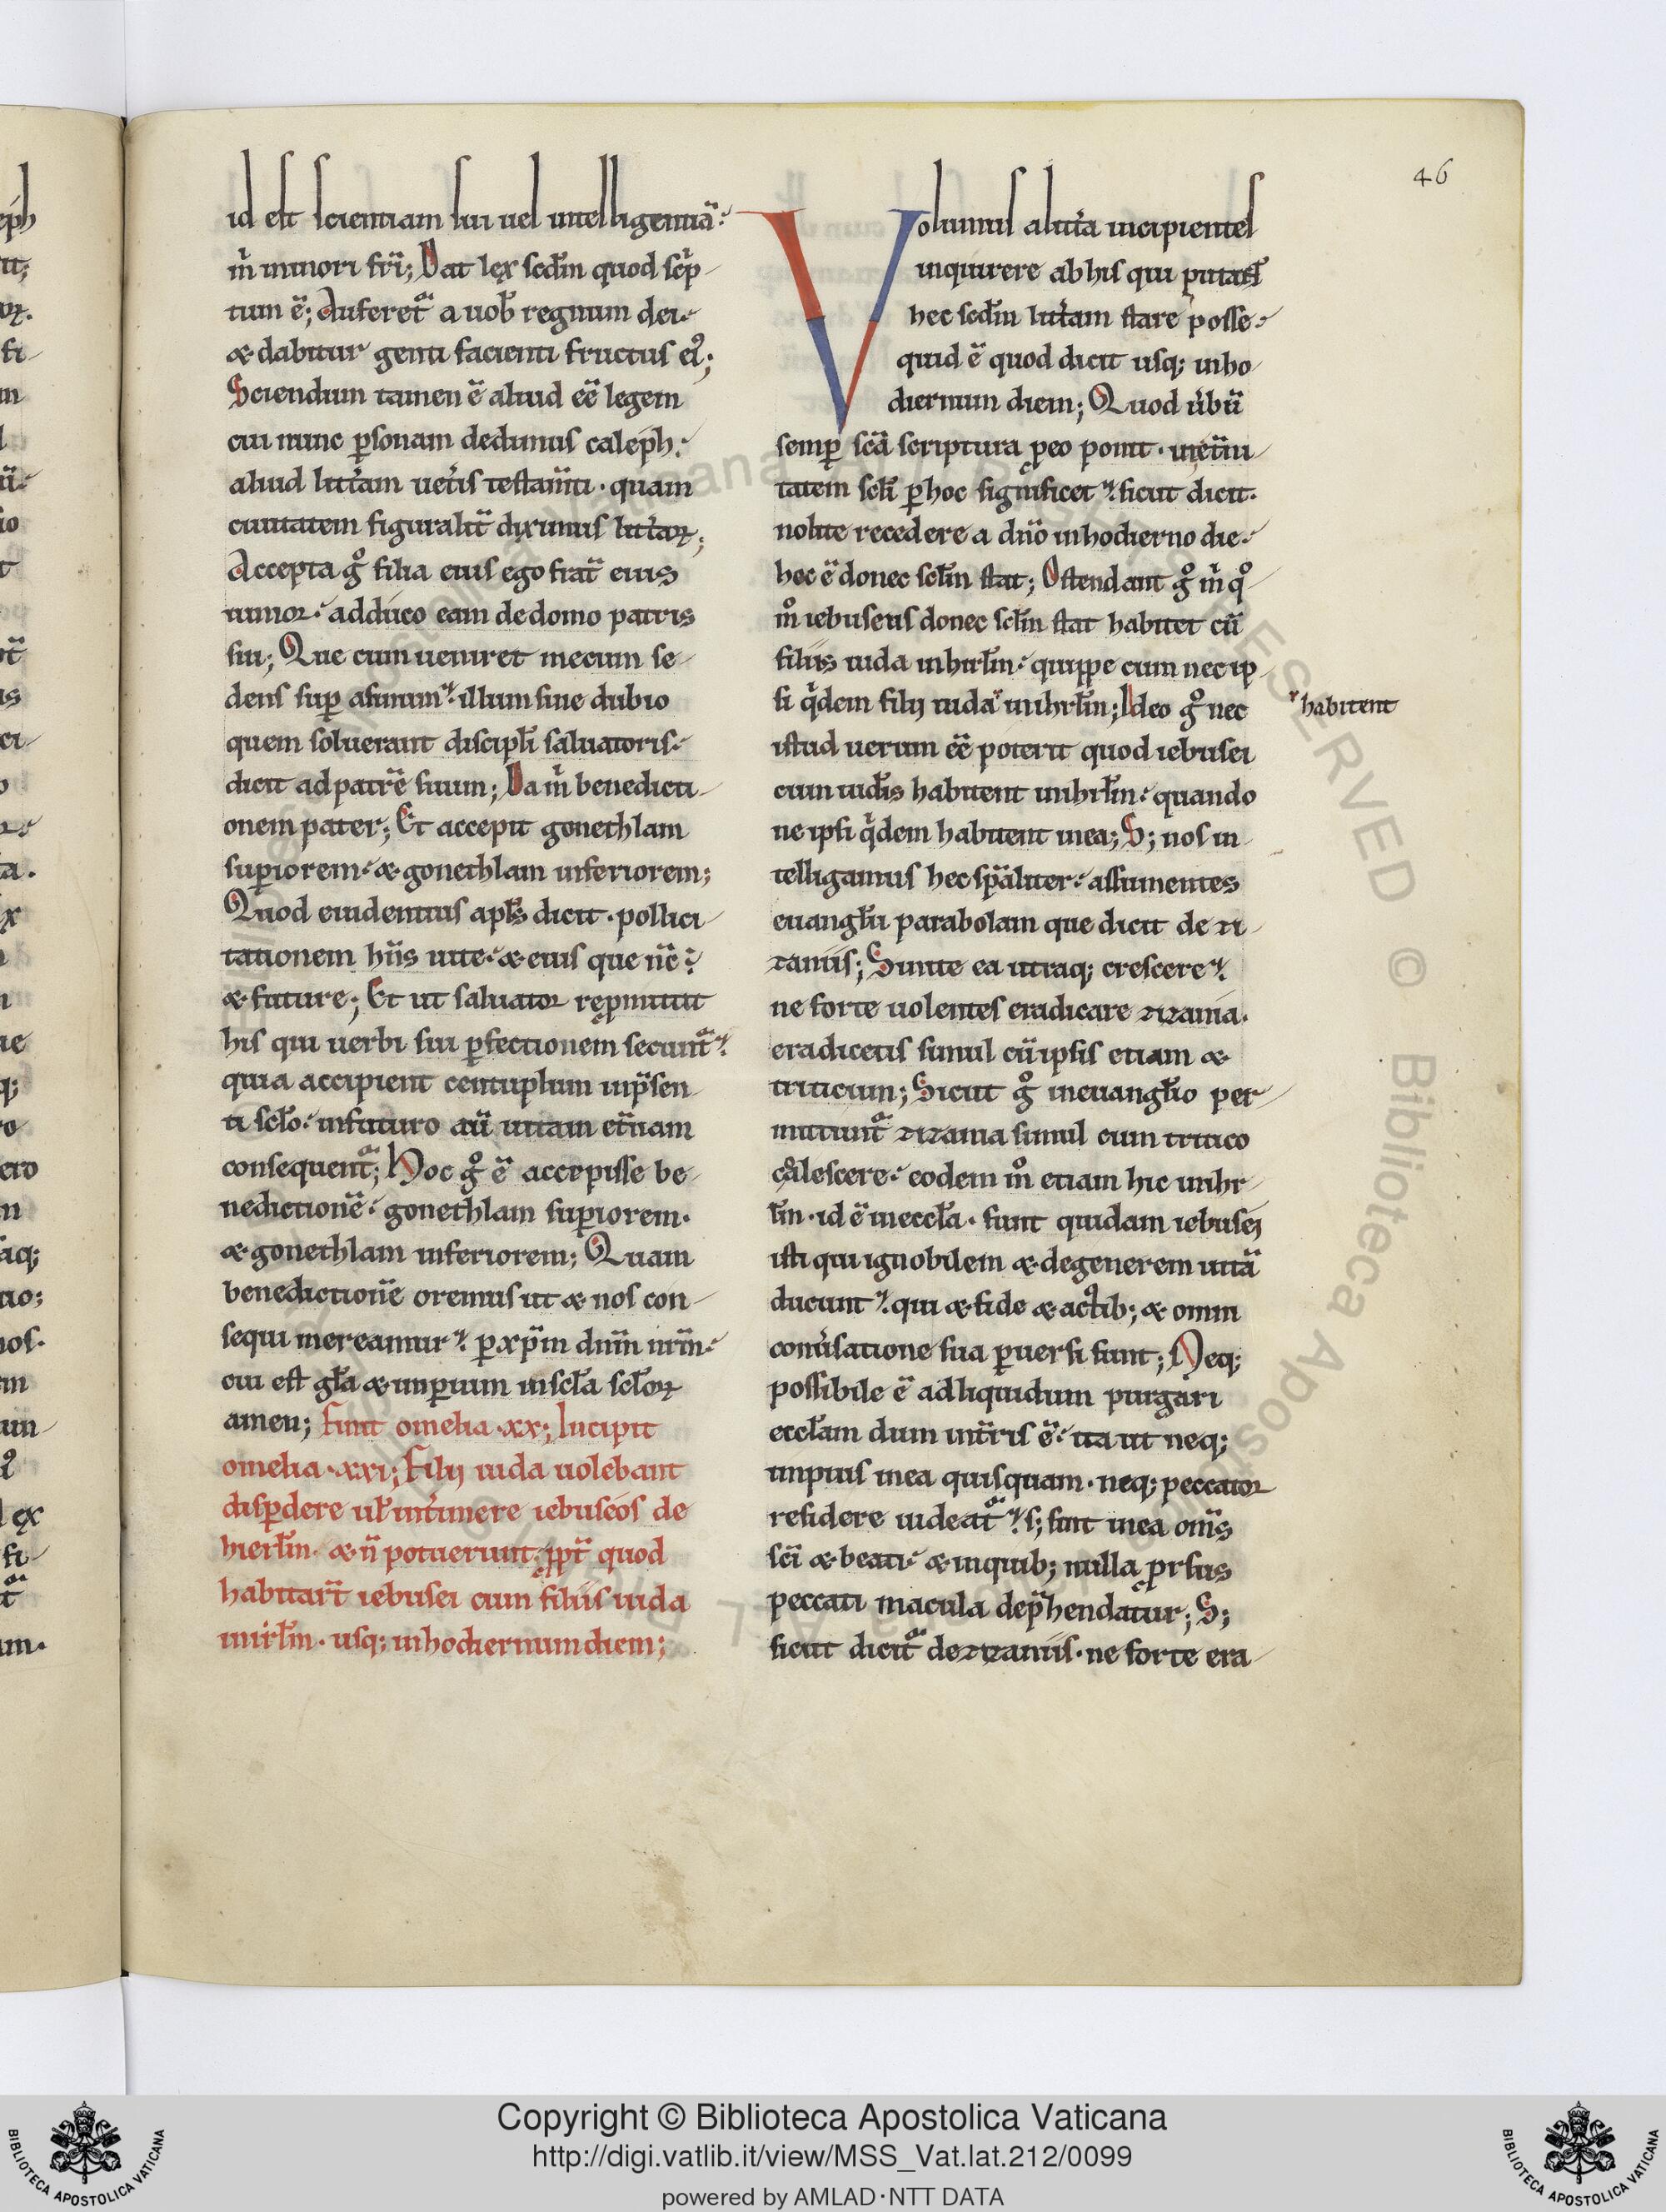 46
id est scientiam sui uel intelligentiā
m̄ minori fr̄i; Dat lex sed̄m quod sc̄p
tum ē; Auferet᷑ a uob̄ regnum dei
& dabitur genti facienti fructus ei᷑;
Sciendum tamen ē aliud ēē legem
cui nunc ꝑsonam dedimus caleph
aliud litt̄am uet̄is testam̄ti · quam
ciuitatem figuralit̄ diximus litt̄aꝝ;
Accepta gͦ filia eius ego frat̄ eius
iunior adduco eam de domo patris
sui; Que cum ueniret mecum se
dens suꝑ asinum illum sine dubio
quem soluerant discipl̄i saluatoris
dicit ad patrē suum; Da m̄ benedicti
onem pater; Et accepit gonethlam
suꝑiorem & gonethlam inferiorem;
Quod euidentius apl̄s dicit · pollici
tationem hn̄s uite & eius que nc̄ ē
& future; Et ut saluator repmittit
his qui uerbi sui ꝑfectionem secunt᷑
quia accipient centuplum inp̄sen
ti scl̄o infuturo aū uitam et̄nam
consequent᷑; Hoc gͦ ē accepisse be
nedictionē gonethlam suꝑiorem
& gonethlam inferiorem; Quam
benedictionē oremus ut & nos con
sequi mereamur ꝑ xp̄m dn̄m nr̄m
cui est gl̄a & imꝑium inscl̄a scl̄oꝝ
amen; finit omelia ·xx; Incipit
omelia ·xxi; Filij iuda uolebant
disꝑdere ul̄ int̄imere iebuseos de
hierl̄m · & n̄ potuerunt ꝓpt̄ quod
habitar̄t iebusei cum filiis iuda
inirl̄m · usq; inhodiernum diem;
Volumus a litt̄a incipientes
inquirere ab his qui putant
hec sed̄m litt̄am stare posse
quid ē quod dicit usq; inho
diernum diem; Quod u̅bū
semꝑ scā scriptura ꝑeo ponit · inet̄ni
tatem scl̄i ꝑ hoc significet sicut dicit
nolite recedere a dn̄o inhodierno die
hoc ē donec scl̄m stat; Ostendant gͦ m̄ qͦ
mͦ iebuseus donec scl̄m stat habitet cū
filiis iuda inhirl̄m quippe cum nec ip
si q̄dem filij iuda inhrl̄m; Ideo gͦ nec
habitent
istud uerum ēē poterit quod iebusei
cum iudis habitent inhrl̄m quando
ne ipsi q̄dem habitent inea; S; nos in
telligamus hec sp̄aliter assumentes
euangl̄ii parabolam que dicit de zi
zaniis; Sinite ea utraq; crescere
ne forte uolentes eradicare zizania
eradicetis simul cū ipsis etiam &
triticum; Sicut gͦ ineuangl̄io per
mittunt᷑ zizania simul cum tritico
coalescere eodem mͦ etiam hic inihr
l̄m · id ē ineccl̄a · sunt quidam iebusei
isti qui ignobilem & degenerem uitā
ducunt qui & fide & actib; & omni
conu̅satione sua ꝑuersi sunt; Neq;
possibile ē ad liquidum purgari
eccl̄am dum int̄ris ē ita ut neq;
impius inea quisquam · neq; peccator
residere uideat᷑ s; sint inea om̄s
sc̄i & beati & inquib; nulla prsus
peccati macula dep̄hendatur; S;
sicut dicit᷑ de zizaniis · ne forte era
Copyright © Biblioteca Apostolica Vaticana
http://digi.vatlib.it/view/MSS_Vat.lat.212/0099
powered by AMLAD·NTT DATA
BIBLIOTECA APOSTOLICA VATICANA
BIBLIOTECA APOSTOLICA VATICANA